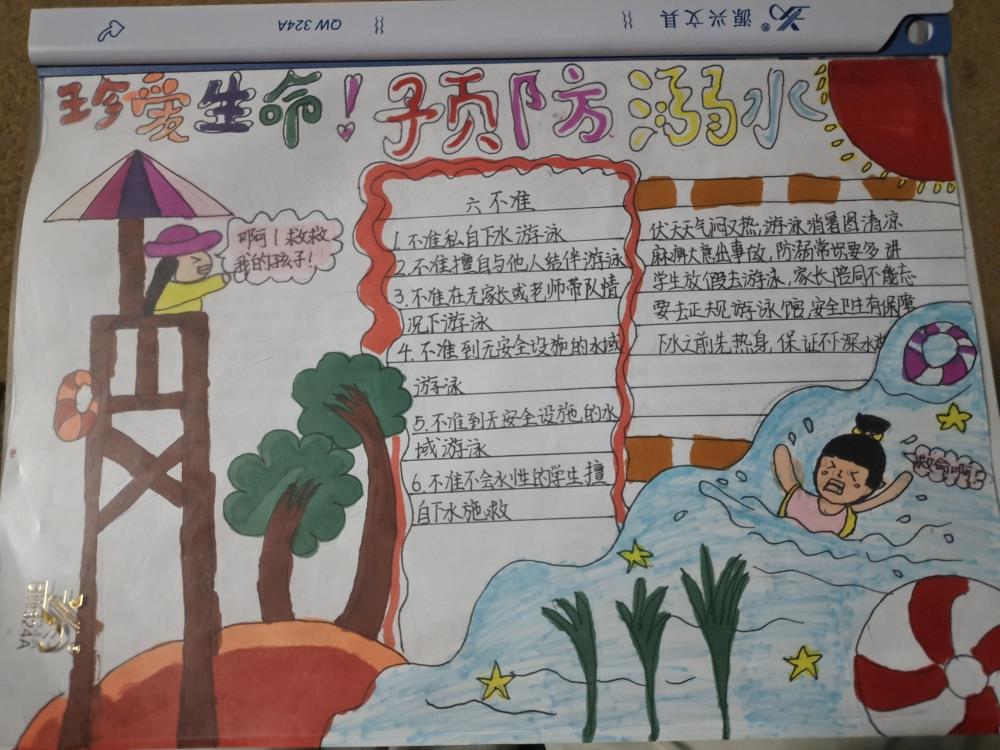 源兴文具
QW 324A
珍爱生命！预防溺水
救救
我的孩子！
六不准
1.不准私自下水游泳
2.不准擅自与他人结伴游泳
3.不准在无家长或老师带队情
况下游泳
4.不准到无安全设施的水域
游泳
5.不准到无安全设施的水
域游泳
6.不准不会水性的学生擅
自下水施救
伏天天气闷又热，游泳消暑图清凉
麻痹大意出事故，防溺常识要多讲
学生放假去游泳，家长陪同不能忘
要去正规游泳馆，安全卫生有保障
下水之前先热身，保证不下深水
救命啊！
324A